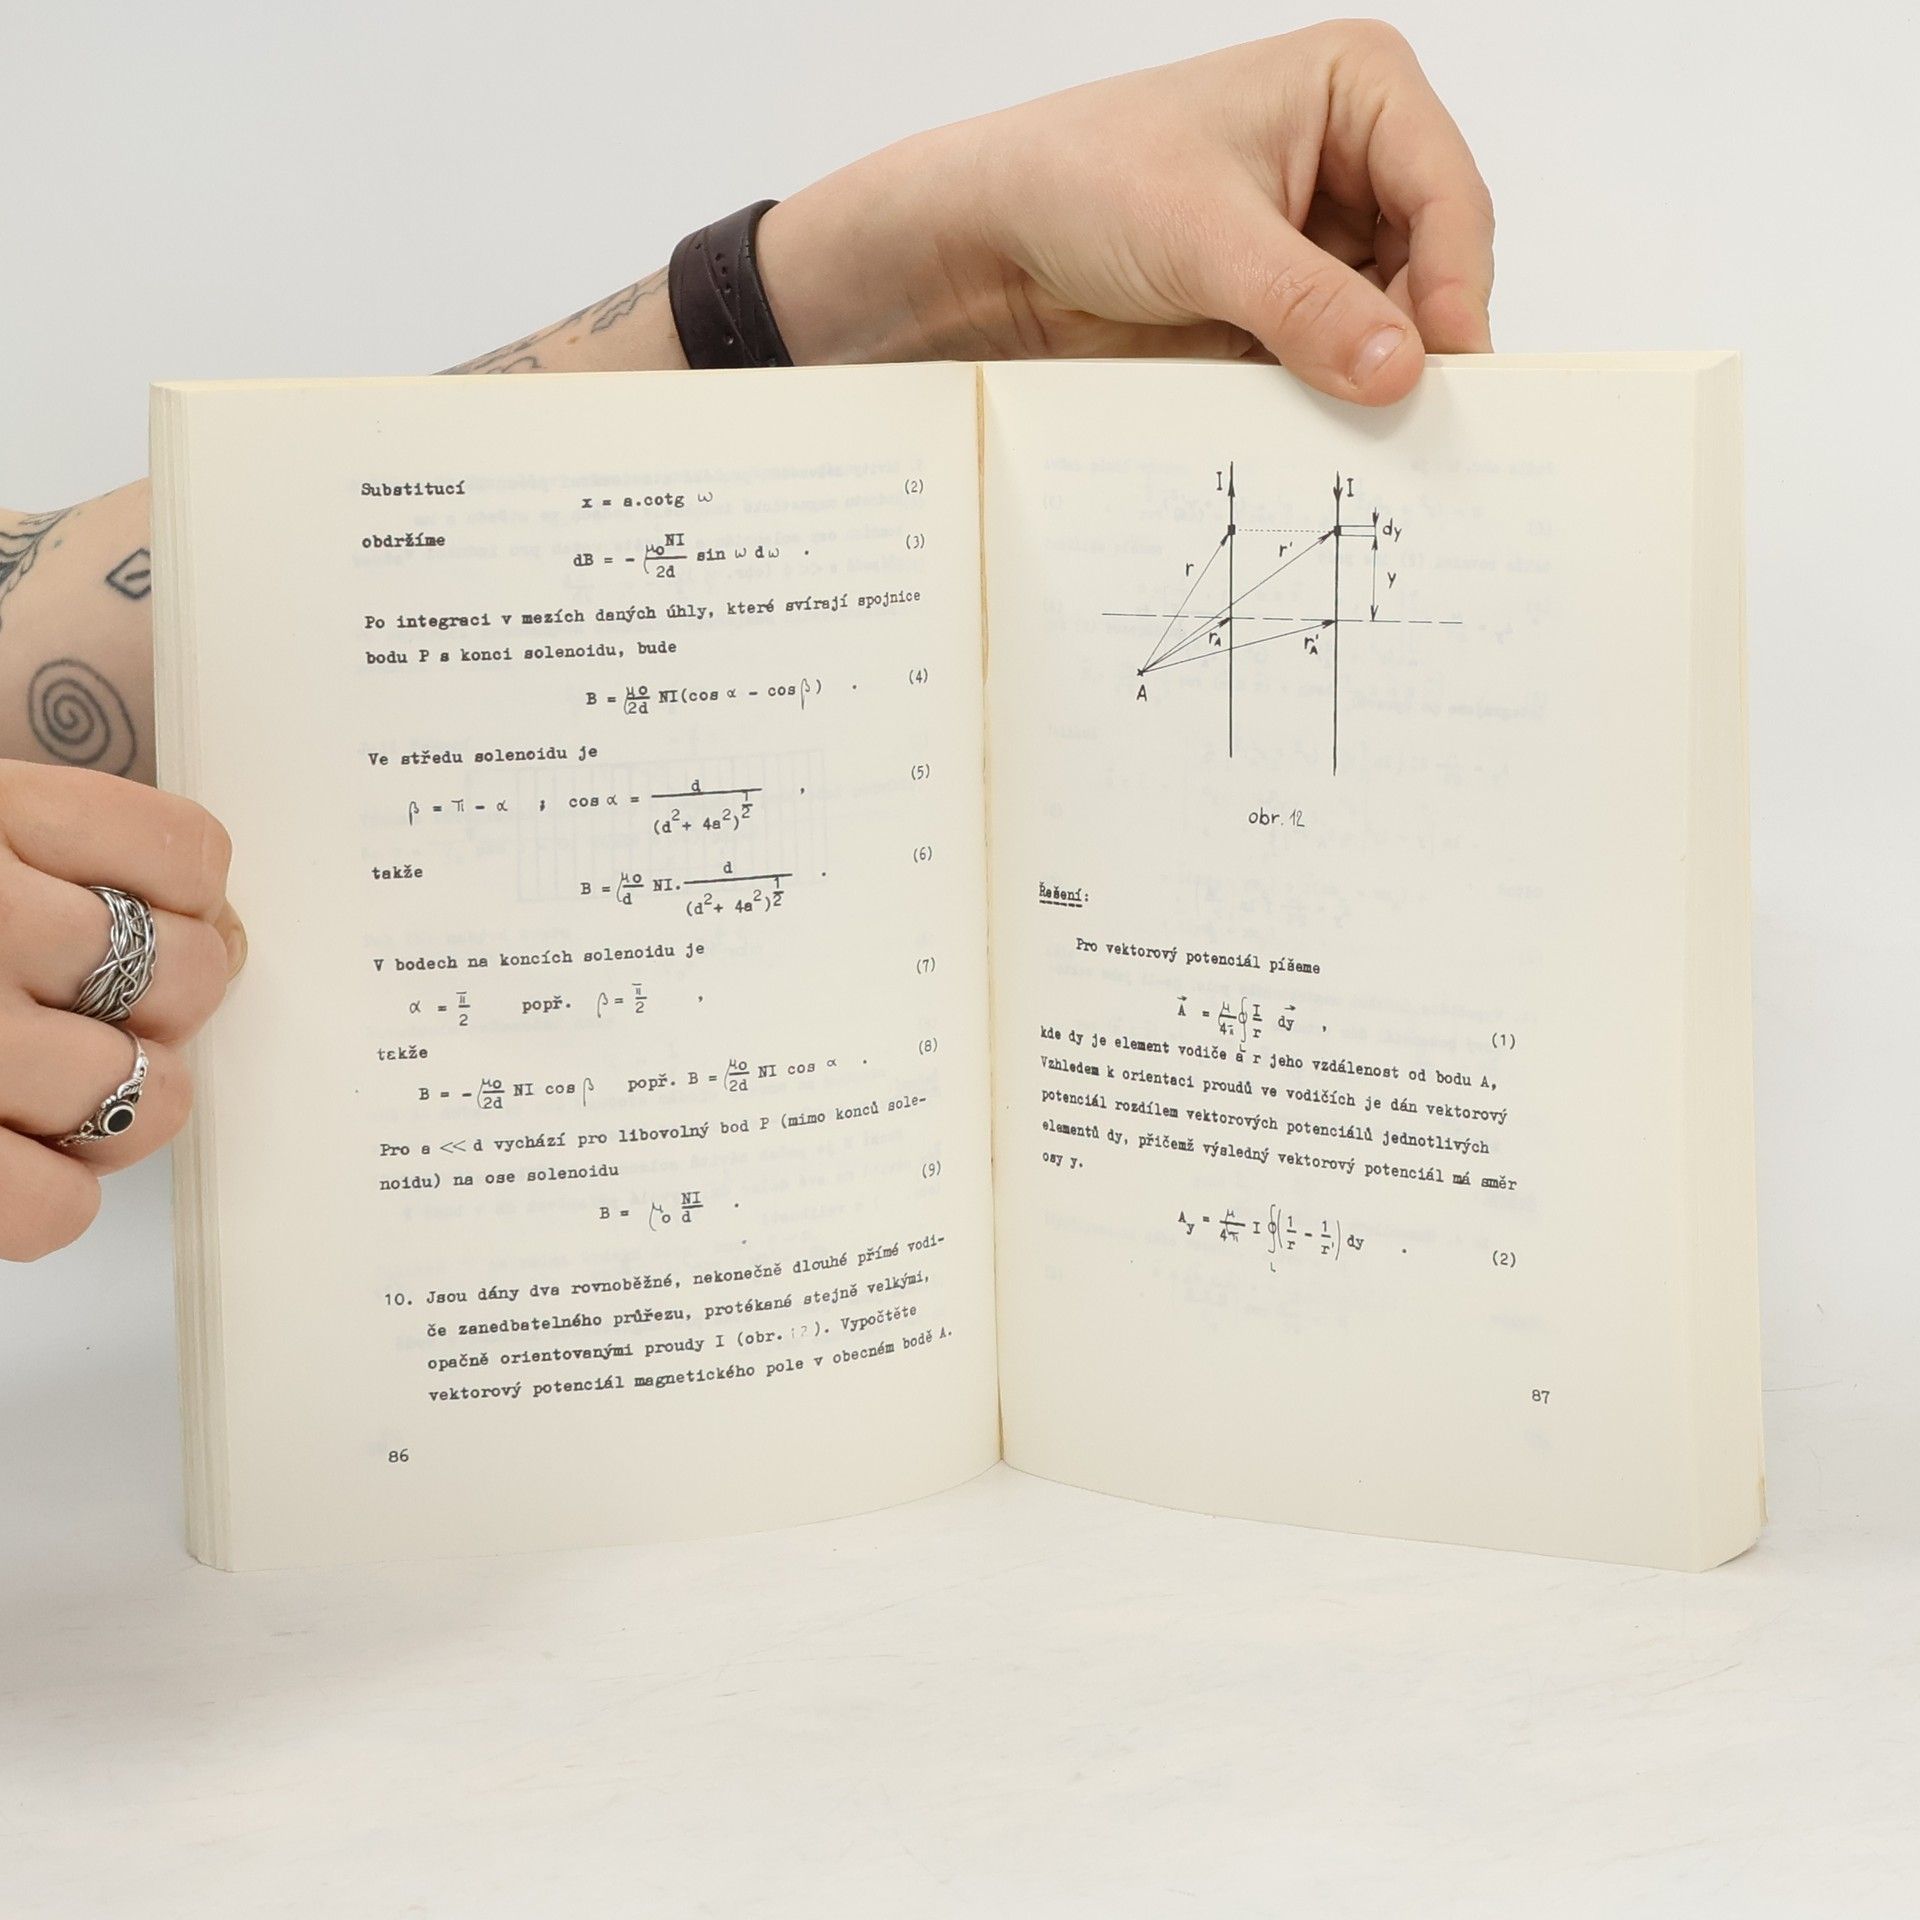 Substitucí
x = a.cotg ω (2)
obdržíme
dB = - μ₀NI/2d sin ω dω . (3)
Po integraci v mezích daných úhly, které svírají spojnice
bodu P s konci solenoidu, bude
B = μ₀/2d NI(cos α - cos β) . (4)
Ve středu solenoidu je
β = π - α ; cos α = d/(d² + 4a²)^½ , (5)
takže
B = μ₀/d NI. d/(d² + 4a²)^½ . (6)
V bodech na koncích solenoidu je
α = π/2 popř. β = π/2 , (7)
takže
B = - μ₀/2d NI cos β popř. B = μ₀/2d NI cos α . (8)
Pro a << d vychází pro libovolný bod P (mimo konců sole-
noidu) na ose solenoidu
B = μ₀ NI/d . (9)
10. Jsou dány dva rovnoběžné, nekonečně dlouhé přímé vodi-
če zanedbatelného průřezu, protékané stejně velkými,
opačně orientovanými proudy I (obr. 12). Vypočtěte
vektorový potenciál magnetického pole v obecném bodě A.
86
I I
dy
r r' y
r_A r'_A
A
obr. 12
Řešení:
Pro vektorový potenciál píšeme
A⃗ = μ/4π ∮_L I/r dy⃗ , (1)
kde dy je element vodiče a r jeho vzdálenost od bodu A,
Vzhledem k orientaci proudů ve vodičích je dán vektorový
potenciál rozdílem vektorových potenciálů jednotlivých
elementů dy, přičemž výsledný vektorový potenciál má směr
osy y.
A_y = μ/4π I ∮_L (1/r - 1/r') dy . (2)
87